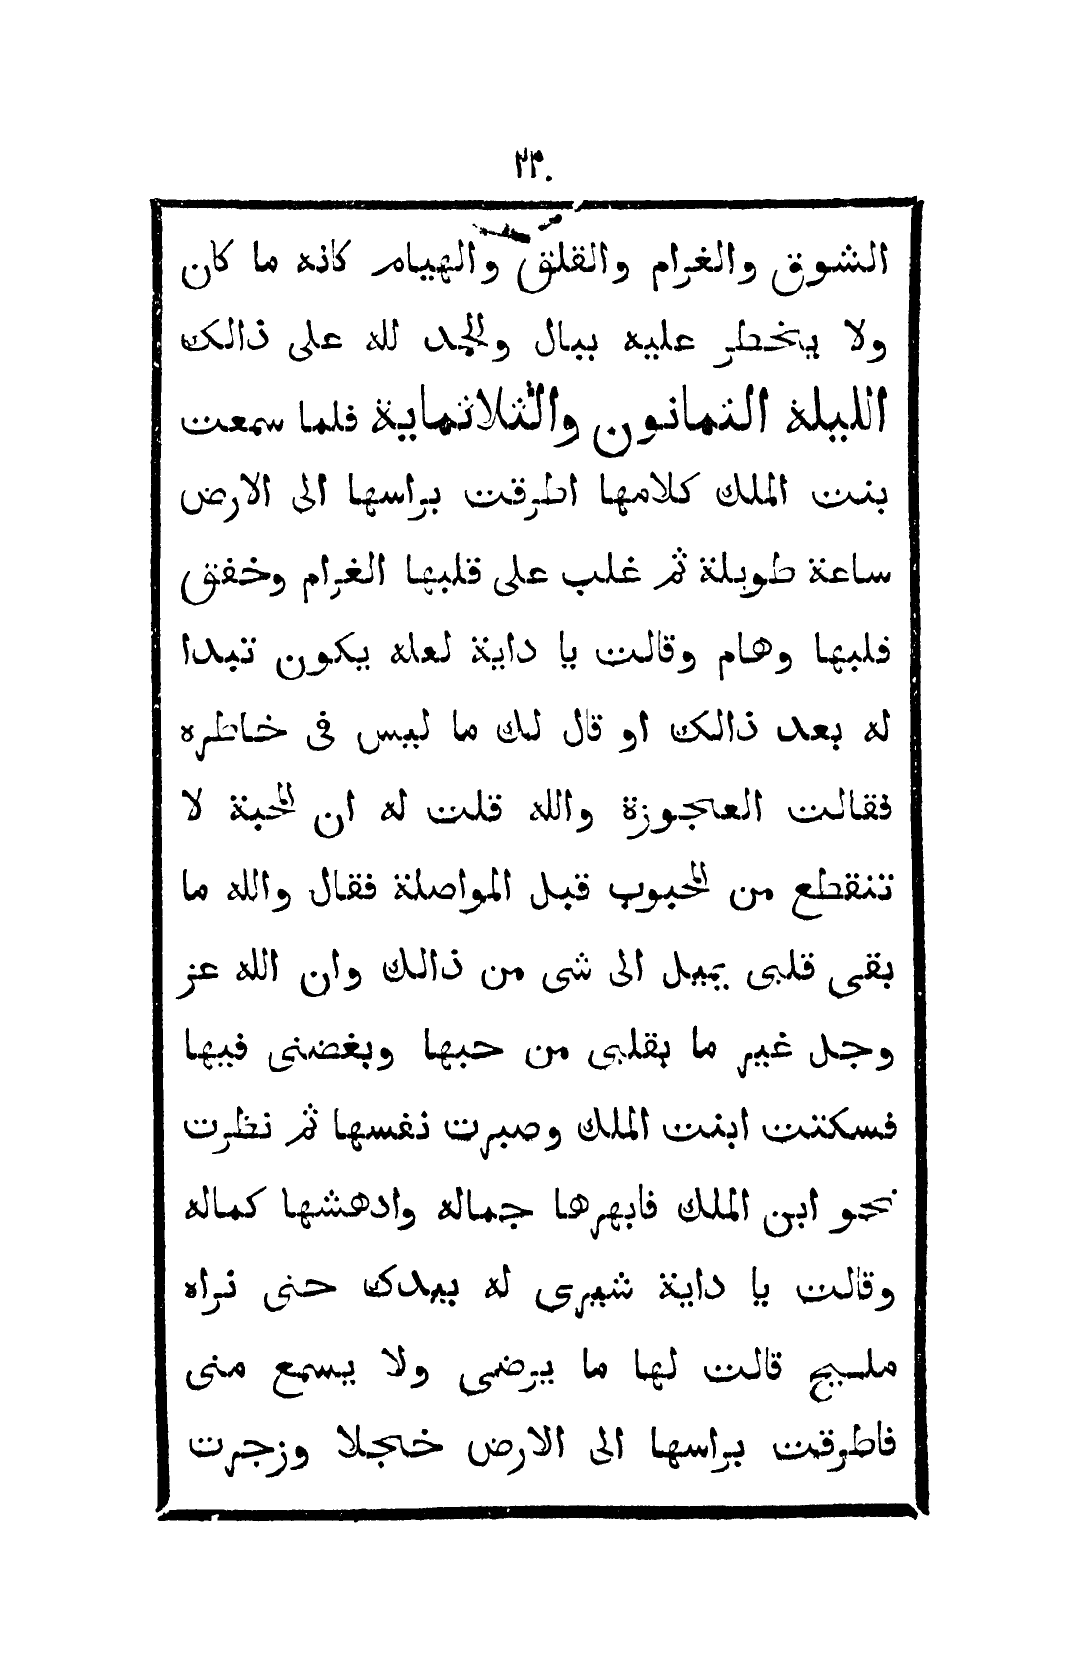 ٢٣٠
الشوق والغرام والقلق والهيام كانه ما كان
ولا يخطر عليه ببال والحمد لله على ذالك
الليلة الثمانون والثلاثماية فلما سمعت
بنت الملك كلامها اطرقت براسها الى الارض
ساعة طويلة ثم غلب على قلبها الغرام وخفق
قلبها وهام وقالت يا داية لعله يكون تبدا
له بعد ذالك او قال لك ما ليس فى خاطره
فقالت العجوزة والله قلت له ان المحبة لا
تنقطع من المحبوب قبل المواصلة فقال والله ما
بقى قلبى يميل الى شى من ذالك وان الله عز
وجل غير ما بقلبى من حبها وبغضنى فيها
فسكتت ابنت الملك وصبرت نفسها ثم نظرت
نحو ابن الملك فابهرها جماله وادهشها كماله
وقالت يا داية شيرى له بيدك حتى نراه
مليح قالت لها ما يرضى ولا يسمع منى
فاطرقت براسها الى الارض خجلا وزجرت